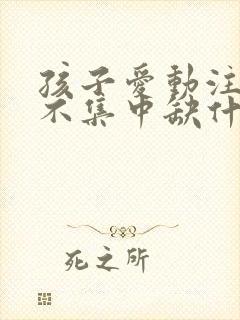 孩子愛動注
不集中缺什
死之所